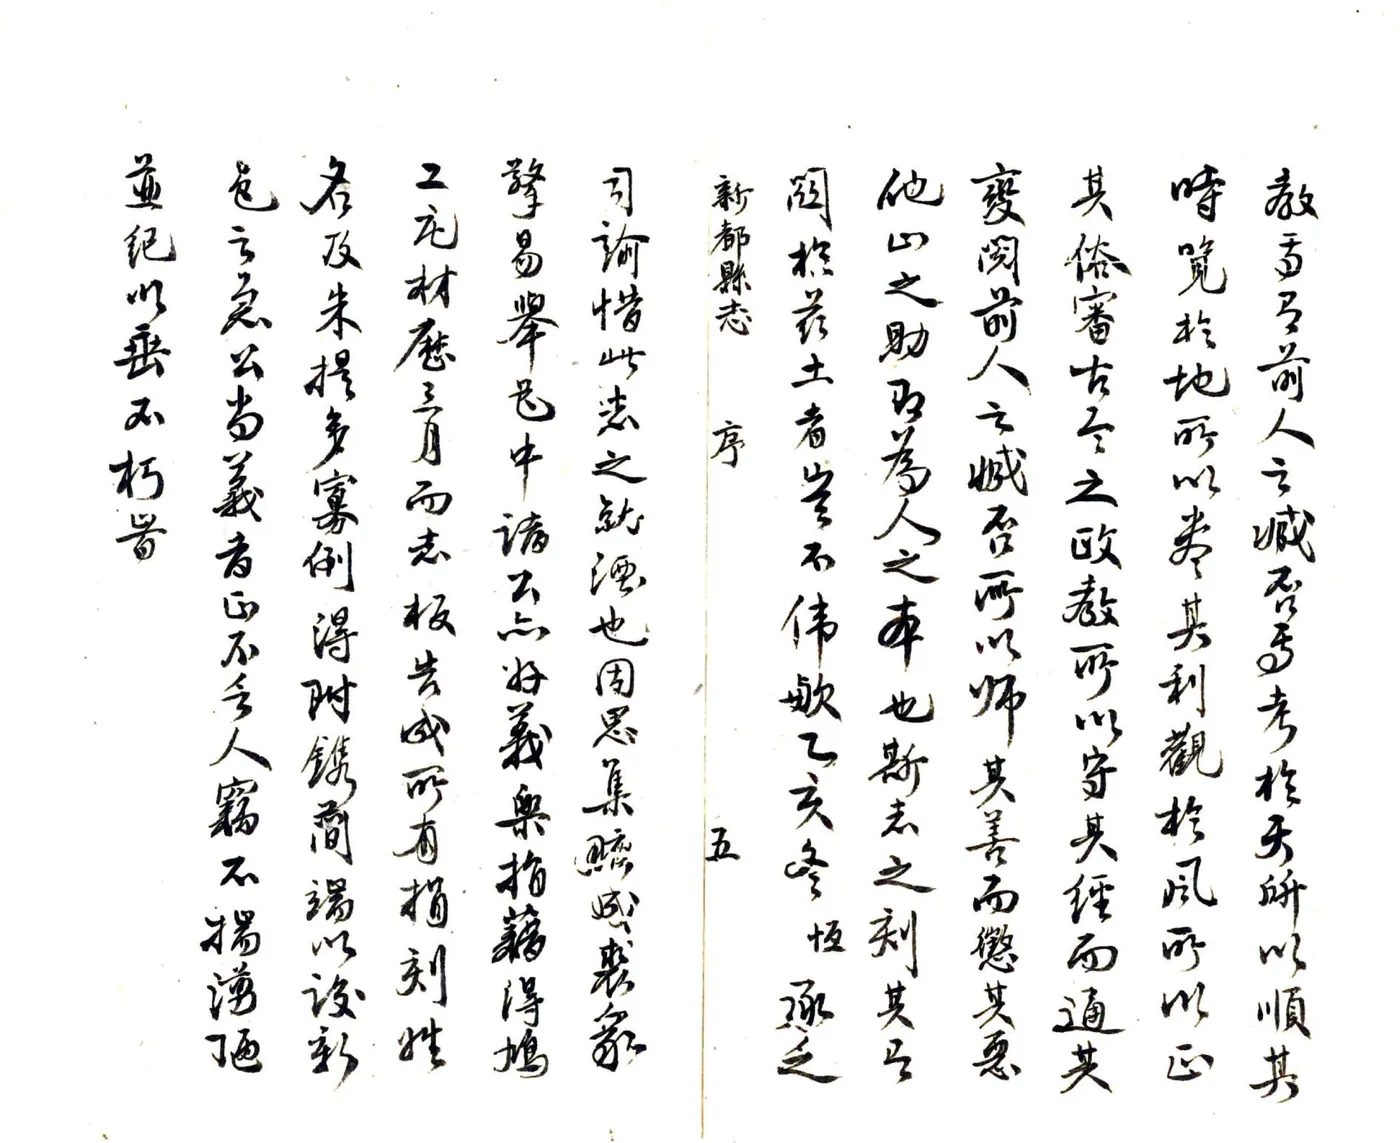 教焉前人之臧否焉考於天所以順其
時覽於地所以盡其利觀於風所以正
其俗審古今之政教所以守其經而通其
變閱前人之臧否所以师其善而懲其惡
他山之助取為人之本也斯志之刻其有
関於茲土者豈不伟歟乙亥冬恒承乏
新都縣志 序 五
司諭惜此志之就湮也因思集腋成裘眾
擎易舉邑中諸公亦好義樂捐藉得鳩
工庀材歷三月而志板告成所有捐刻姓
名及朱提多寡例得附鐫簡端以後新
邑之急公尚義者正不乏人竊不揣譾陋
並紀以垂不朽